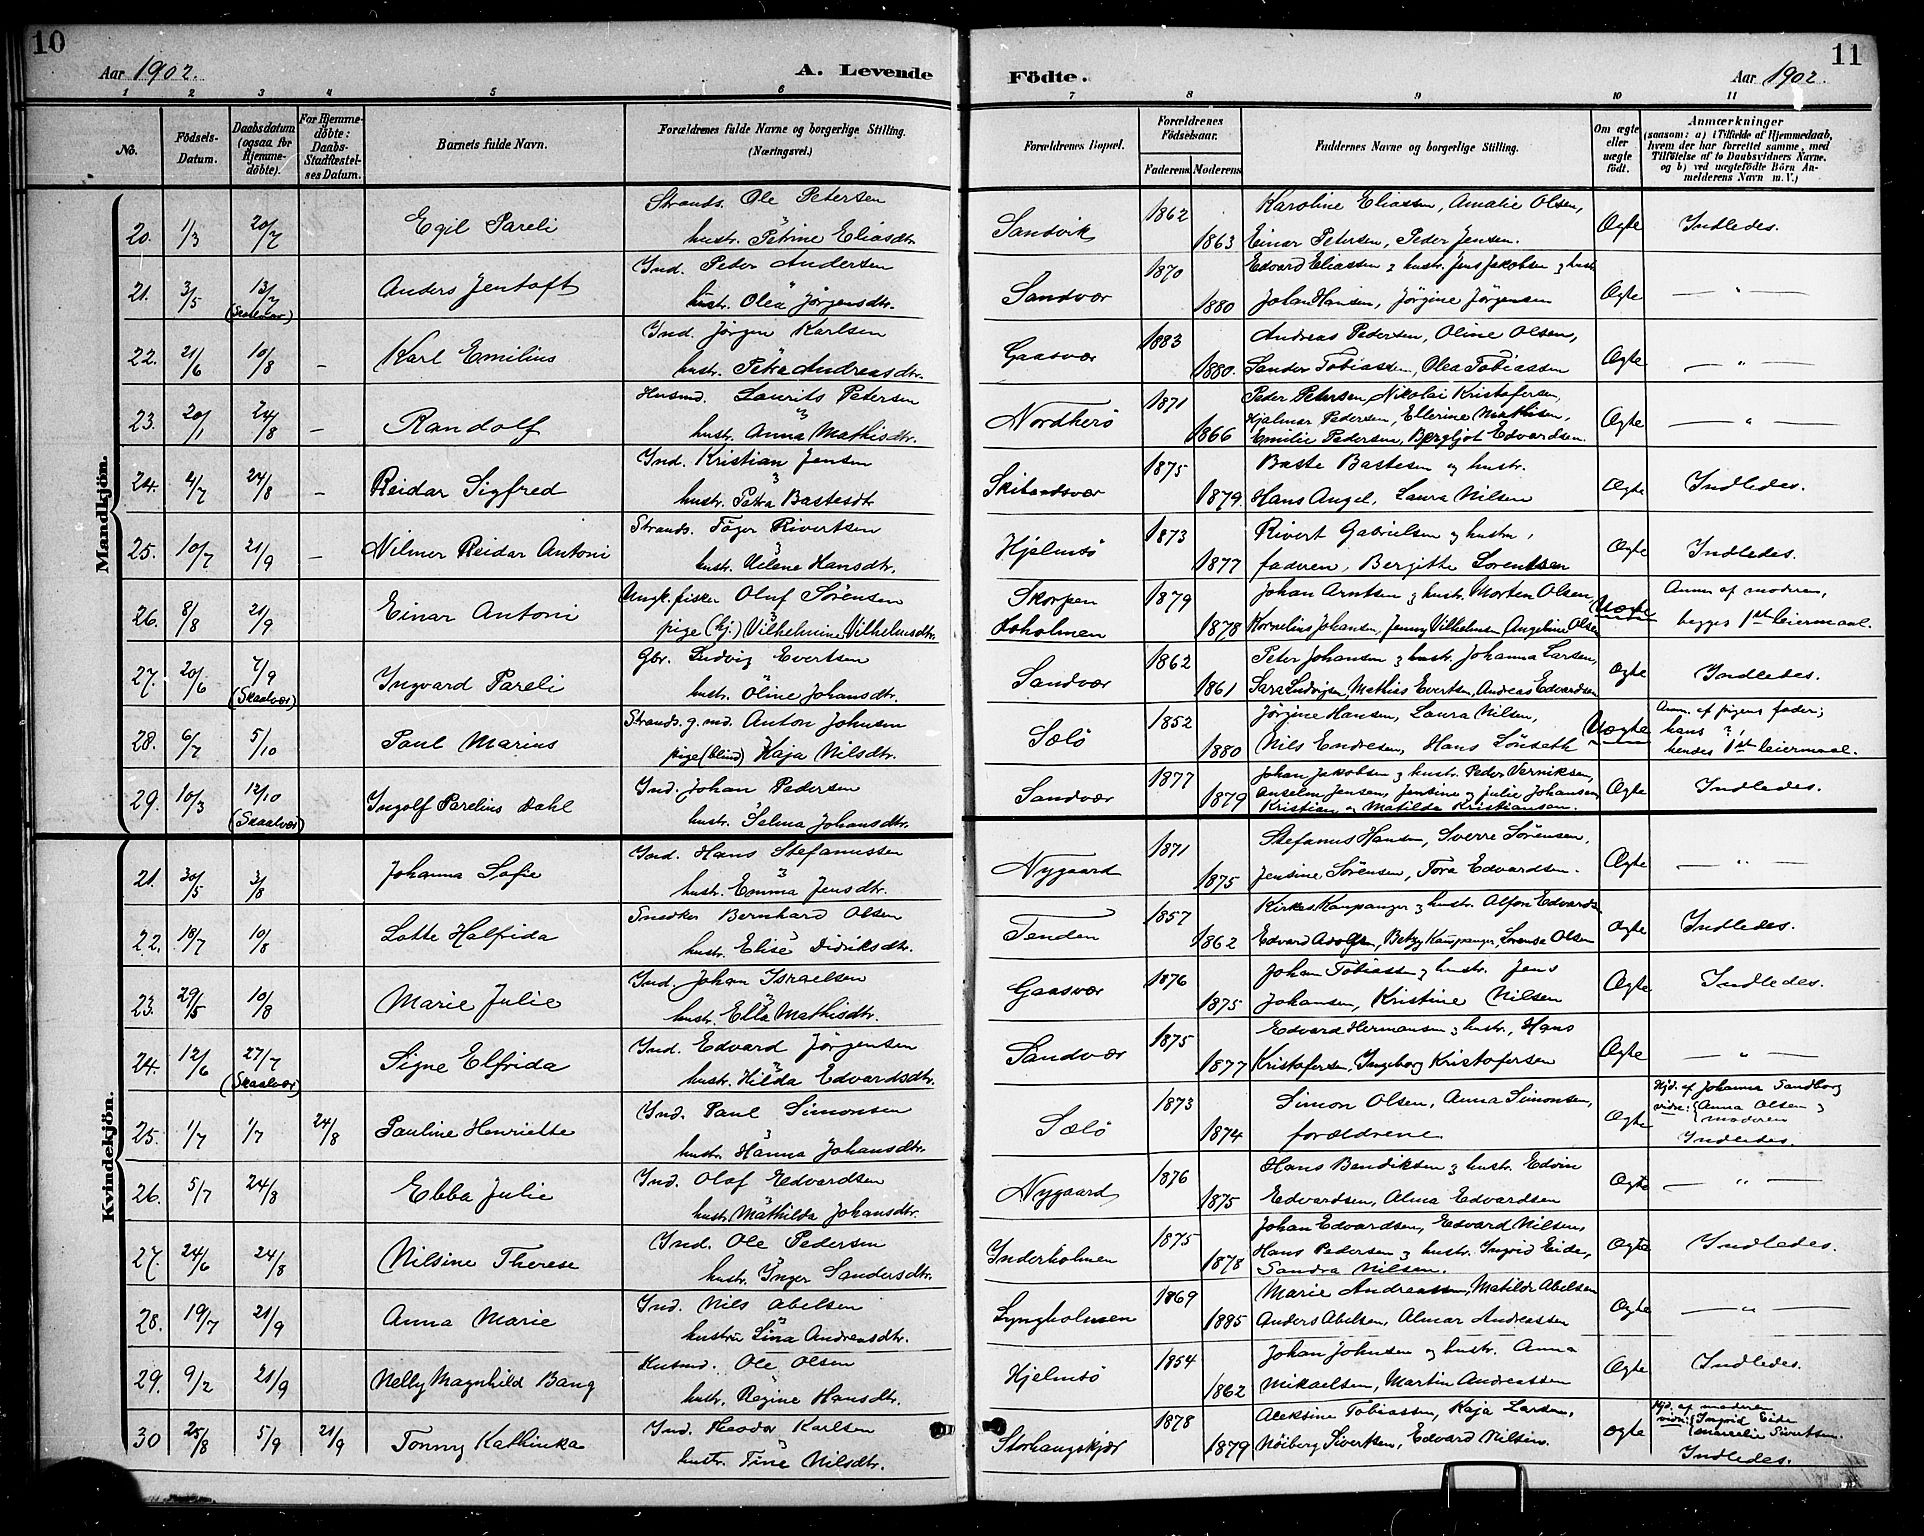 10
Aar 1902.
A. Levende
Födte.
Aar 1902.
11
1 2 3 4 5 6 7 8 9 10 11
No.
Födsels-Datum.
Daabsdatum (ogsaa for Hjemme-döbte).
For Hjemme-döbte: Daabs-Stadfæstel-ses Datum.
Barnets fulde Navn.
Forældrenes fulde Navne og borgerlige Stilling. (Næringsvei.)
Forældrenes Bopæl.
Forældrenes Födselsaar.
Faderens. Moderens.
Faddernes Navne og borgerlige Stilling.
Om ægte eller uægte födt.
Anmærkninger (saasom: a) i Tilfælde af Hjemmedaab, hvem der har forrettet samme, med Tilföielse af to Daabsvidners Navne, og b) ved uægtefödte Börn An-melderens Navn m. V.)
Mandkjön.
20. 1/3 20/7 Egil Pareli Strands. Ole Petersen hustr. Petrine Eliasdtr. Sandvik 1862 1863 Karoline Eliassen, Amalie Olsen, Einar Petersen, Peder Jensen. Ægte Indledes.
21. 3/5 13/7 (Skaalvær) Anders Jentoft Ind. Peder Andersen hustr. Olea Jörgensdtr. Sandvær 1870 1880 Edvard Eliassen & hustr. Jens Jakobsen & hustr. Johan Hansen, Jörgine Jörgensen Ægte — " —
22. 21/6 10/8 – Karl Emilius Ind. Jörgen Karlsen hustr. Petra Andreasdtr. Gaasvær 1883 1880. Andreas Pedersen, Oline Olsen, Sander Tobiassen, Olea Tobiassen Ægte — " —
23. 20/1 24/8 – Randolf Husmd. Laurits Petersen hustr. Anna Mathisdtr. Nordherö 1871 1866 Peder Petersen, Nikolai Kristofersen, Hjalmar Pedersen, Ellerine Mathisen, Emilie Pedersen, Bergljot Edvardsen. Ægte — " —
24. 4/7 24/8 – Reidar Sigfred Ind. Kristian Jensen hustr. Petra Bastesdtr Skibandsvær 1875 1879 Baste Bastesen og hustr. Hans Angel, Laura Nilsen Ægte Indledes.
25. 10/7 21/9 – Nilmer Reidar Antoni Strands. Töger Rivertsen hustr. Helene Hansdtr. Hjelmsö 1873 1877 Rivert Gabrielsen og hustru, faderen, Bergitte Lorentsen Ægte Indledes.
26. 8/8 21/9 Einar Antoni Ungk. fisker Oluf Sörensen pige (hj.) Vilhelmine Vilhelmsdtr. Skorpen Hoholmen 1879 1878 Johan Arntsen & hustr. Morten Olsen, Kornelius Johansen, Jenny Vilhelmsen Angeline Olsen Uægte Anm. af moderen, begges 1ste leiermaal.
27. 20/6 7/9 (Skaalvær) Ingvard Pareli Gbr. Ludvig Evertsen hustr. Oline Johansdtr. Sandvær 1862 1861 Peter Johansen & hustr. Johanna Larsen, Sara Ludvigsen, Mathias Evertsen, Andreas Edvardsen Ægte Indledes.
28. 6/7 5/10 Paul Marius Strands. g. md. Anton Johnsen pige (blind) Kaja Nilsdtr. Sælö 1852 1880 Jörgine Hansen, Laura Nilsen, Nils Endresen, Hans Lönseth Uægte Anm. af pigens fader; hans ?, hendes 1ste leiermaal.
29. 10/3 12/10 (Skaalvær) Ingolf Parelius Dahl Ind. Johan Pedersen hustr. Selma Johansdtr. Sandvær 1877 1879 Johan Jakobsen & hustr. Peder Verniksen, Anselm Jensen, Jensine og Julie Johansen, Kristian og Matilda Kristiansen. Ægte Indledes.
Kvindekjön.
21. 30/5 3/8 Johanna Sofie Ind. Hans Stefanussen hustr. Emma Jensdtr. Nygaard 1871 1875 Stefanus Hansen, Sverre Sörensen, Jensine Sörensen, Tora Edvardsen. Ægte — " —
22. 18/7 10/8 Lotte Halfrida Snedker Bernhard Olsen hustr. Elise Didriksdtr. Tenden 1857 1862 Kirkes. Kaupanger & hustr. Alfon Edvards Edvard Adolfsen, Betzy Kaupanger, Lorense Olsen Ægte Indledes.
23. 29/5 10/8 Marie Julie Ind. Johan Israelsen hustr. Ella Mathisdtr. Gaasvær 1876 1875 Johan Tobiassen & hustr. Jens Johansen, Kristine Nilsen Ægte Indledes.
24. 12/6 27/7 (Skaalvær) Signe Elfrida Ind. Edvard Jörgensen hustr. Hilda Edvardsdtr. Sandvær 1875 1877 Edvard Hermansen & hustr., Hans Kristofersen, Ingeborg Kristofersen Ægte — " —
25. 1/7 1/7 24/8 Pauline Henriette Ind. Paul Simonsen hustr. Hanna Johansdtr. Sælö 1873 1874 Simon Olsen, Anna Simonsen, forældrene Ægte Hjd. af Johanna Sandborg vidne: Anna Olsen & moderen Indledes.
26. 5/7 24/8 Ebba Julie Ind. Olaf Edvardsen hustr. Mathilda Johansdtr. Nygaard 1876 1875 Hans Bendiksen & hustr. Edvin Edvardsen, Alma Edvardsen Ægte — " —
27. 24/6 24/8 Nilsine Therese Ind. Ole Pedersen hustr. Inger Sandersdtr. Inderholmen 1875 1878 Johan Edvardsen, Edvard Nilsen, Hans Pedersen & hustr. Ingrid Eide, Sandra Nilsen. Ægte Indledes.
28. 19/7 21/9 Anna Marie Ind. Nils Abelsen hustru Lina Andreasdtr. Lyngholmen 1869 1885 Marie Andreassen, Matilde Abelsen Anders Abelsen, Almar Andreassen Ægte — " —
29. 9/2 21/9 Nelly Magnhild Bang Husmd. Ole Olsen hustr. Regine Hansdtr. Hjelmsö 1854 1862 Johan Johnsen og hustr. Anna Mikaelsen, Martin Andreassen Ægte Indledes.
30 25/8 5/9 21/9 Tonny Kathinka Ind. Theodor Karlsen hustr. Tine Nilsdtr. Storhaugskjær 1878 1879 Aleksine Tobiassen, Kaja Larsen, Nöiberg Sivertsen, Edvard Nilsen. Ægte Hjd. af moderen vidn: Ingrid Eide Marselie Sivertsen. Indledes.